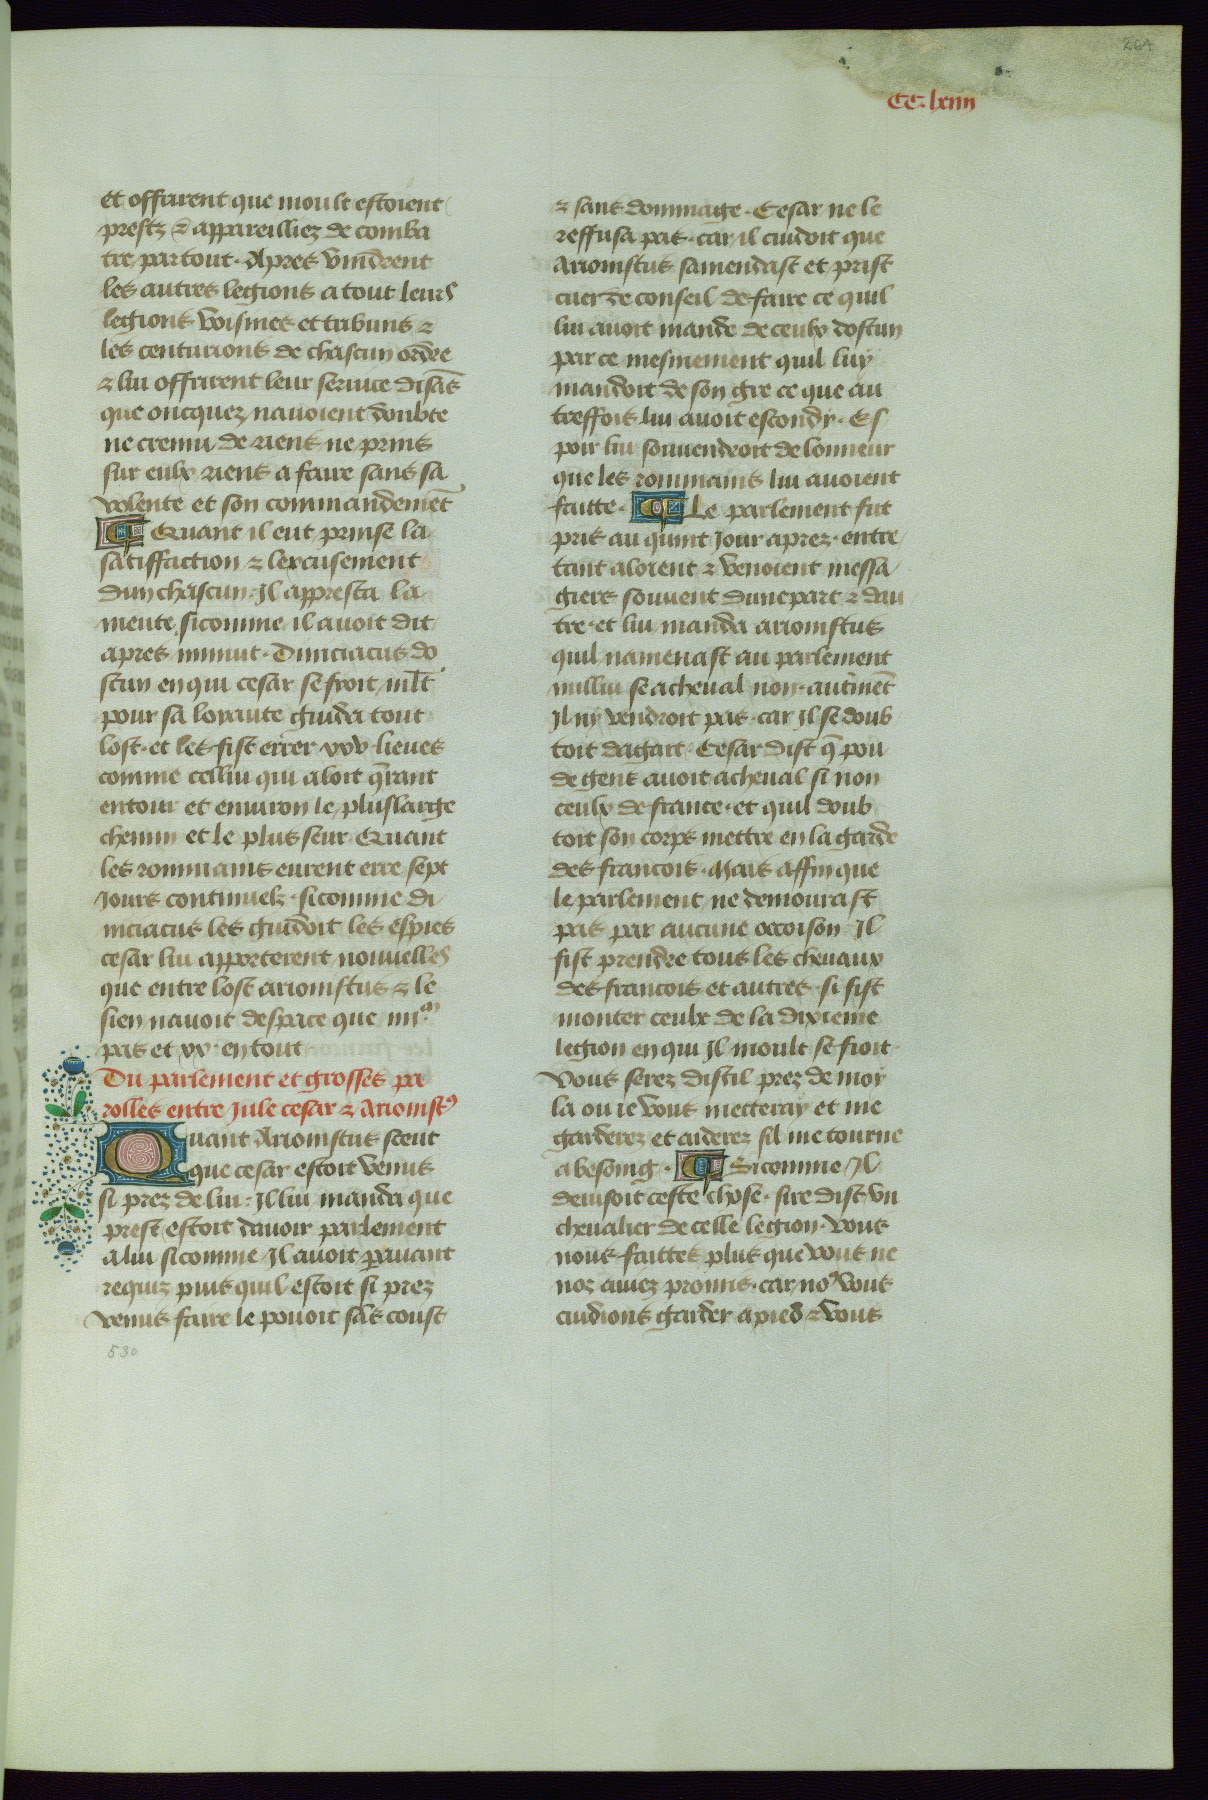 264
CC.lxiiii
et offrirent que moult estoient
prestz & appareilliez de comba
tre partout. Apres vindrent
les autres legions a tout leurs
legions voisines et tribuns &
les centurions de chascun ordre
& lui offrirent leur service disãs
que oncquez navoient doubte
ne cremu de riens ne prins
sur eulx riens a faire sans sa
volente et son commandemẽt
Quant il eut prinse la
satiffaction & lexcusement
dun chascun. Il appresta la
mente sicomme il avoit dit
apres minuit. Diniciacus do
stun en qui cesar se froit mlt
pour sa loyaute guida tout
lost. et les fist errer xxv lieues
comme cellui qui aloit q̃rant
entour et environ le plus large
chemin et le plus seur Quant
les rommains eurent erre sept
Jours continuelz. sicomme di
niciacus les guidoit les espies
cesar lui apporterent nouvelles
que entre lost arionistus & le
sien navoit despace que iiii.m
pas et xx. en tout
Du parlement et grosses pa
rolles entre Jule cesar & Arionist9
Quant Arionistus sceut
que cesar estoit venus
si prez de lui. Il lui manda que
prest estoit davoir parlement
a lui sicomme Il avoit p̱avant
requiz puis quil estoit si prez
venus faire le povoit sãs coust
530
& sans dommage. Cesar ne le
reffusa pas. car il cuidoit que
Arionistus samendast et prist
cuer de conseil de faire ce quil
lui avoit mande de ceulx dostun
par ce mesmement quil luy
mandoit de son gre ce que au
treffois lui avoit escondy. Es
poir lui souvendroit de lonneur
que les rommains lui avoient
faitte. Le parlement fut
pris au quint Jour aprez. entre
tant aloient & venoient messa
giers souvent dune part & dau
tre. et lui manda arionistus
quil namenast au parlement
nullui se a cheval non. autm̃et
Il ny vendroit pas. car Il se doub
toit dagait. Cesar dist q̃ pou
de gens avoit a cheval si non
ceulx de france. et quil doub
toit son corps mettre en la garde
des francois. Mais affin que
le parlement ne demourast
pas par aucune occoison Il
fist prendre tous les chevaux
des francois et autres. si fist
monter ceulx de la dixieme
legion en qui Il moult se fioit.
Vous serez dist il prez de moy
la ou ie vous metteray et me
garderez et aiderez sil me tourne
a besoing. Sicomme Il
devisoit ceste chose. sire dist vn
chevalier de celle legion. vous
nous faittes plus que vous ne
noz aviez promis. car no9 vous
cuidions garder a pied & vous